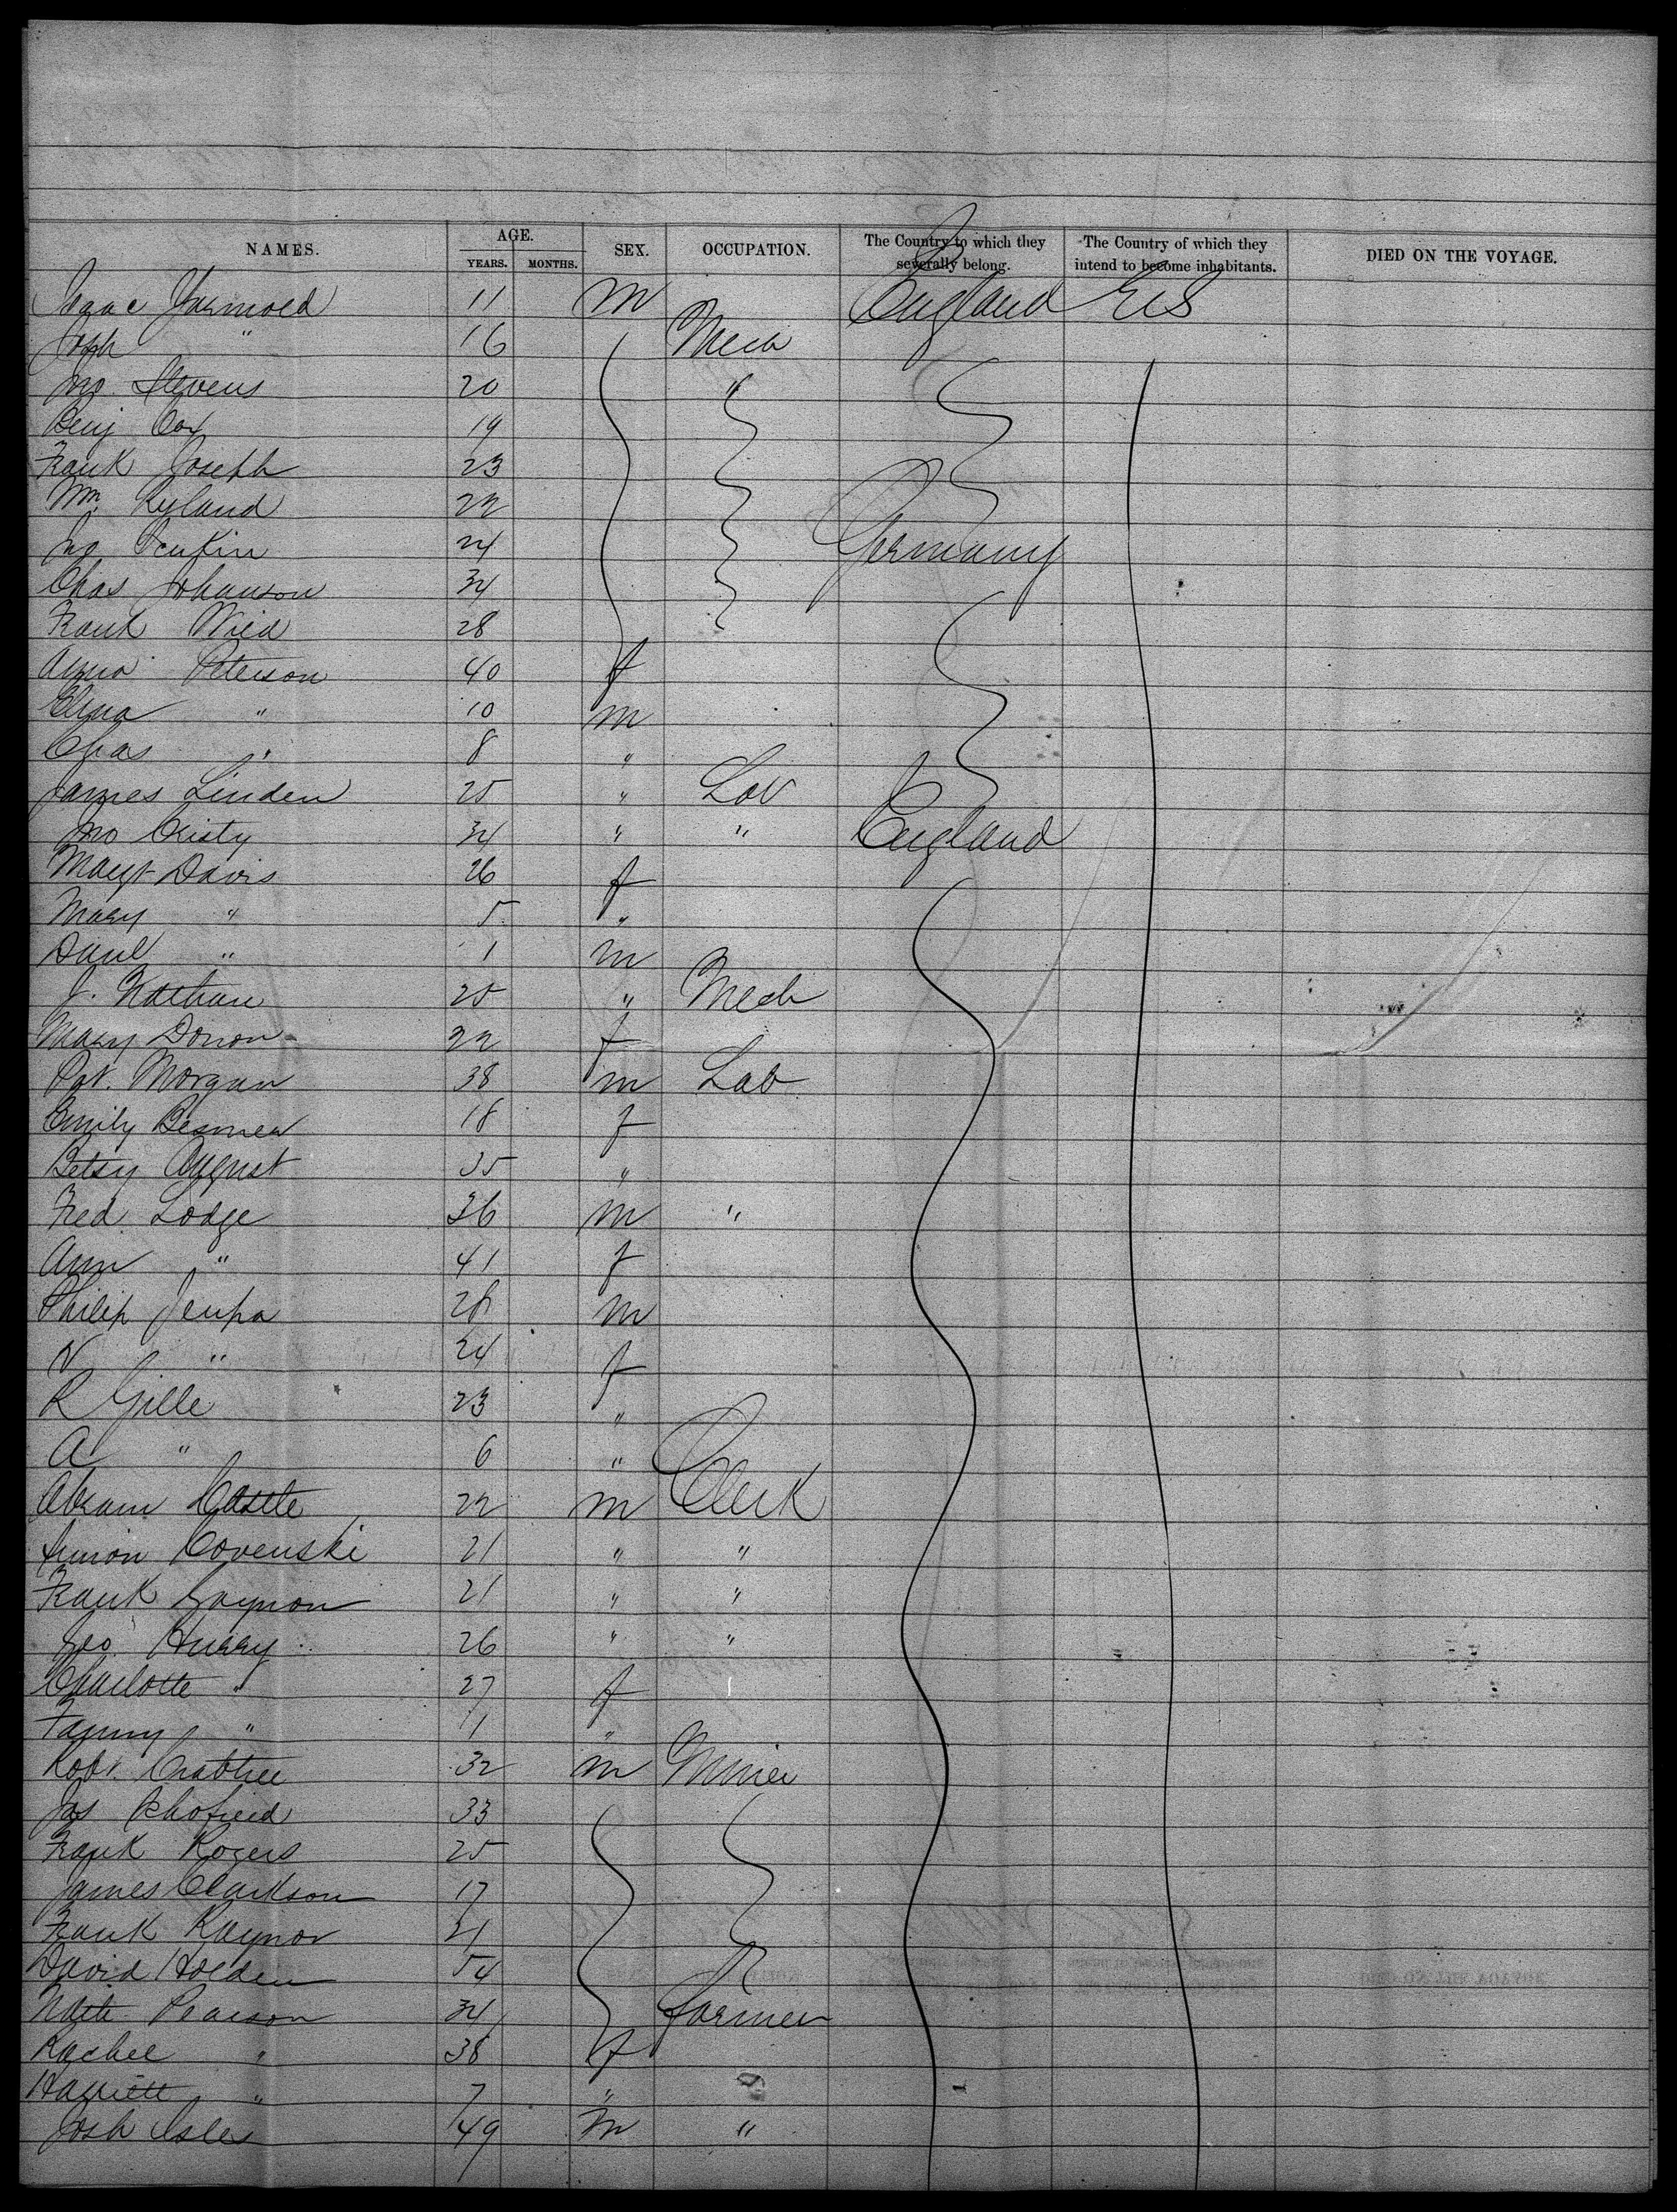 NAMES. AGE. YEARS. MONTHS. SEX. OCCUPATION. The Country to which they severally belong. The Country of which they intend to become inhabitants. DIED ON THE VOYAGE.
Isaac 11 m England US
Joseph " 16 Mech
Jno. Stevens 20 "
Benj Cox 19
Frank Joseph 23
Wm. Ryland 22
Jno Jenkin 24 Germany
Chas Johanson 34
Frank Wied 28
Anna Peterson 40 f
" 10 m
Chas " 8 "
James Linden 25 " Lab
Jno Cristy 34 " " England
Margt Davis 26 f
Mary " 5 "
Danl " 1 m
J. Nathan 25 " Mech
Mary Donon 22 f
Pat. Morgan 38 m Lab
Emily 18 f
Betsy August 35 "
Fred Lodge 36 m "
Ann " 41 f
Philip Jenpa 28 m
N " 24 f
R Gille 23 "
A " 6 "
Abram Castle 22 m Clerk
Simon Covenski 21 " "
Frank Gaynon 21 " "
Geo. Hurry 26 " "
Charlotte " 27 f
Fanny " 11 "
Robt. Crabtree 32 m Miner
Jas Schofield 33
Frank Rogers 25
James Clarkson 17
Frank Raynor 21
David Holden 54
Pearson 34 Farmer
Rachel " 38 f
Harriett " 7 "
Josh Isles 49 m "